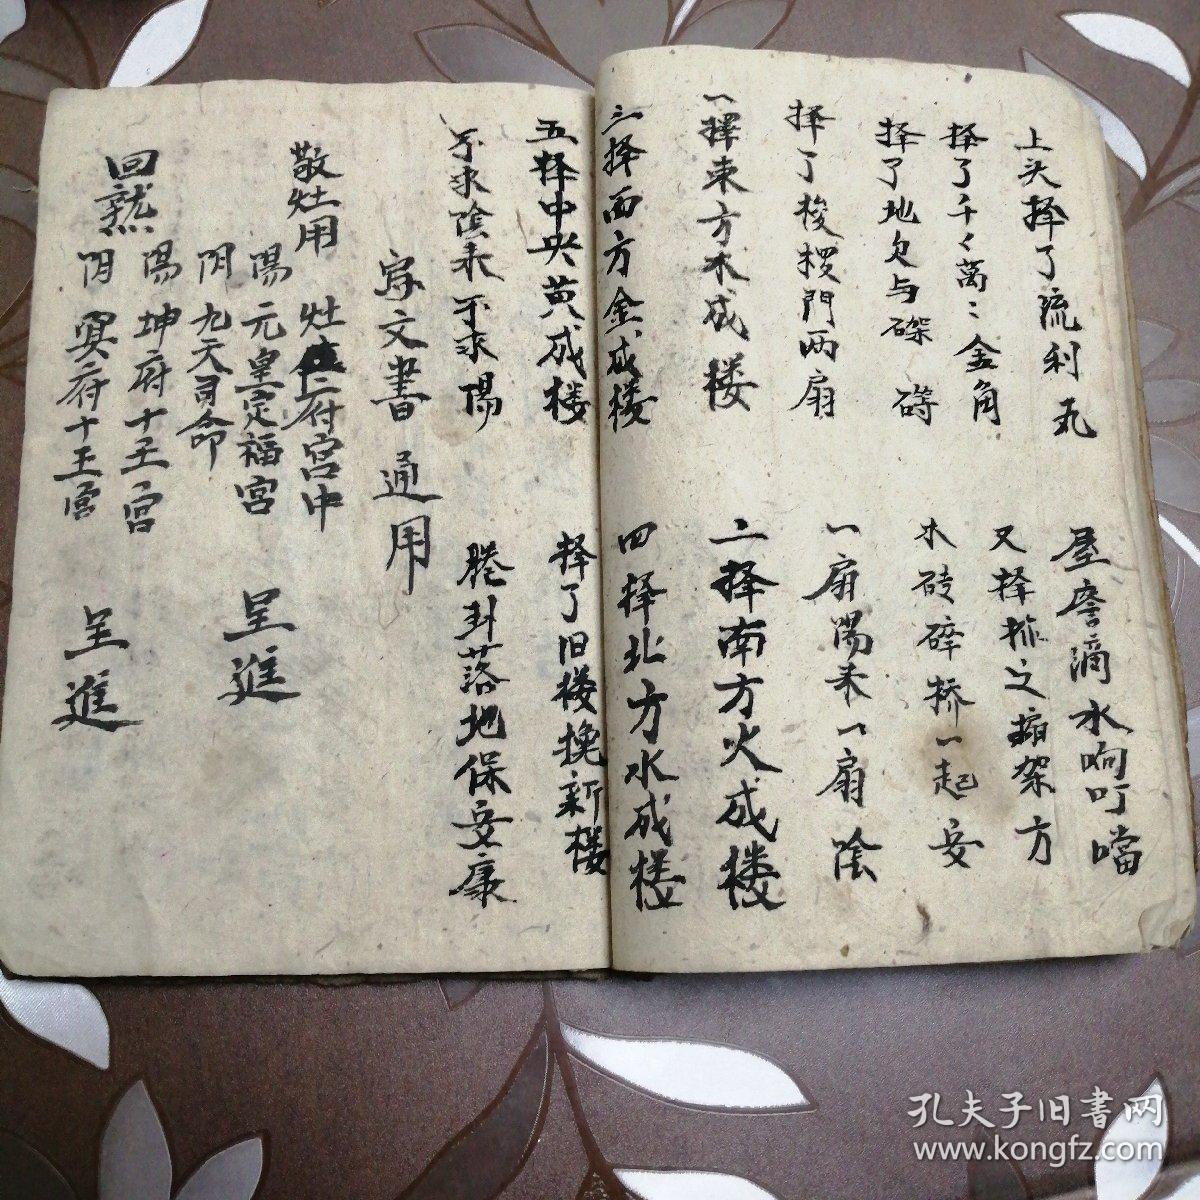 上头择了流利瓦 屋簷滴水响叮噹
择了千々萬〻金角 又择 方
择了地 与磉 木砖碎 一起安
择了 門两扇 一扇陽来一扇陰
一擇東方木成楼 二择南方火成楼
三择西方金成楼 四择北方水成楼
五择中央黄成楼 择了旧楼换新楼
不求陰来不求陽 勝卦落地保安康
文書通用
敬灶用 灶 二府宫中
陽 元皇定福宫
阴 九天司命 呈進
回熬
陽 坤府十王宫
阴 冥府十王宫 呈進
孔夫子旧书网
www.kongfz.com